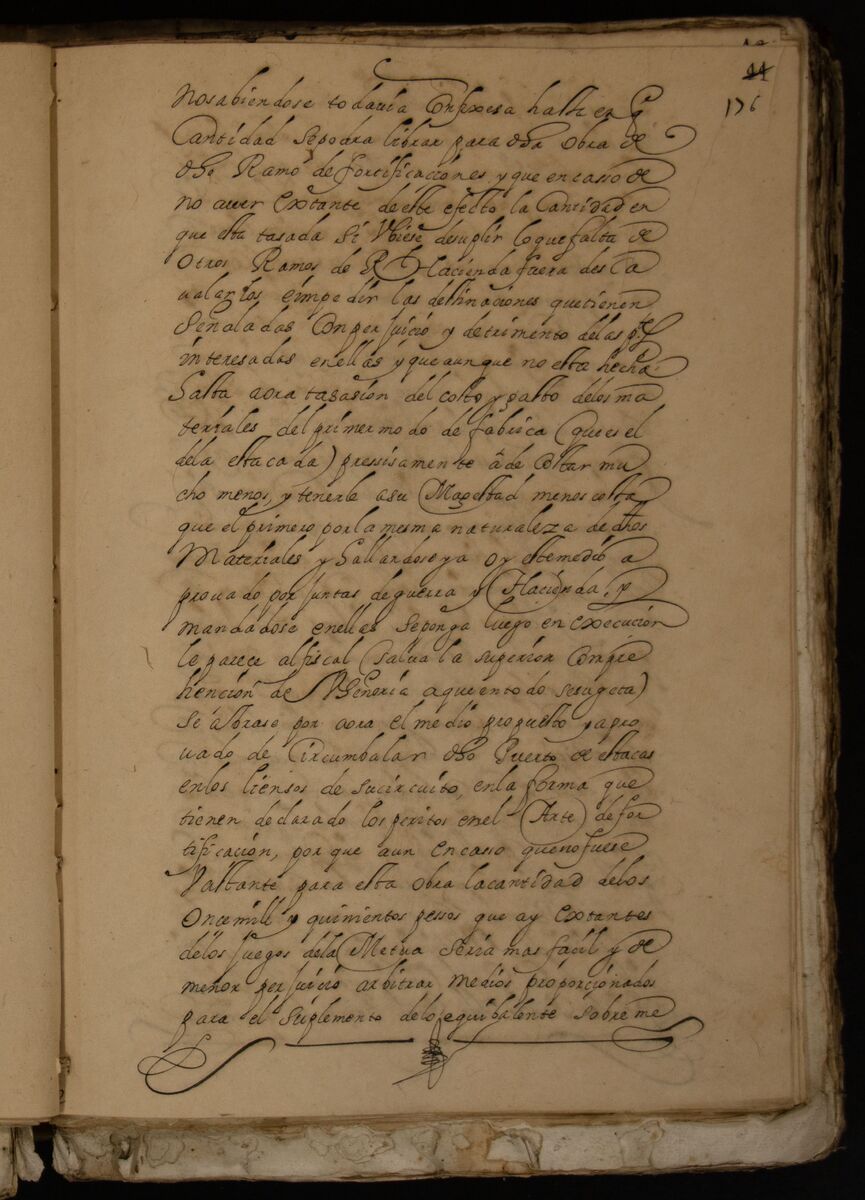 44
176
no sabiendose todavia con fixesa hasta en q
Cantidad se podra librar para dha obra de
dho Ramo de fortificaciones y que en casso de
no auer extante de este efecto la Cantidad en
que esta tasada si Vbiese de suplir lo que falta de
otros Ramos de Rl Hacienda fuera desca
valarlos e impedir las destinaciones que tienen
Señaladas Con perjuicio y detrimento de las ptes
interesadas en ellas y que aunque no esta hecha
hasta aora tasasion del costo y gasto de los ma
teriales del primer modo de fabrica (que es el
de la estacada) pressisamente á de costar mu
cho menos, y tenerle a su Magestad menos costa
que el primero por la mesma naturaleza de dhos
Materiales y hallandose ya oy este medio a
prouado por juntas de guerra y Hacienda, y
mandadose en ellas se ponga luego en execucion
le parece al fiscal (salua la superior Compre
hencion de VSenoria a que en todo se sugeta)
se abrase por aora el medio propuesto y apro
uado de Circumbalar dho Puerto de estacas
en los liensos de su circuito, en la forma que
tienen declarado los peritos en el Arte de for
tificacion, por que aun en casso que no fuese
Vastante para esta obra la cantidad de los
Once mill y quinientos pessos que ay extantes
de los juegos de la Metua seria mas facil y de
menor perjuicio arbitrar medios proporcionados
para el suplemento de lo equibalente sobre me